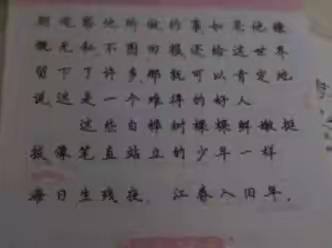 期观察他所做的事如果他慷
慨无私不图回报还给这世界
留下了许多,那就可以肯定地
说这是一个难得的好人
这些白桦树棵棵鲜嫩挺
拔像笔直站立的少年一样
海日生残夜，江春入旧年。